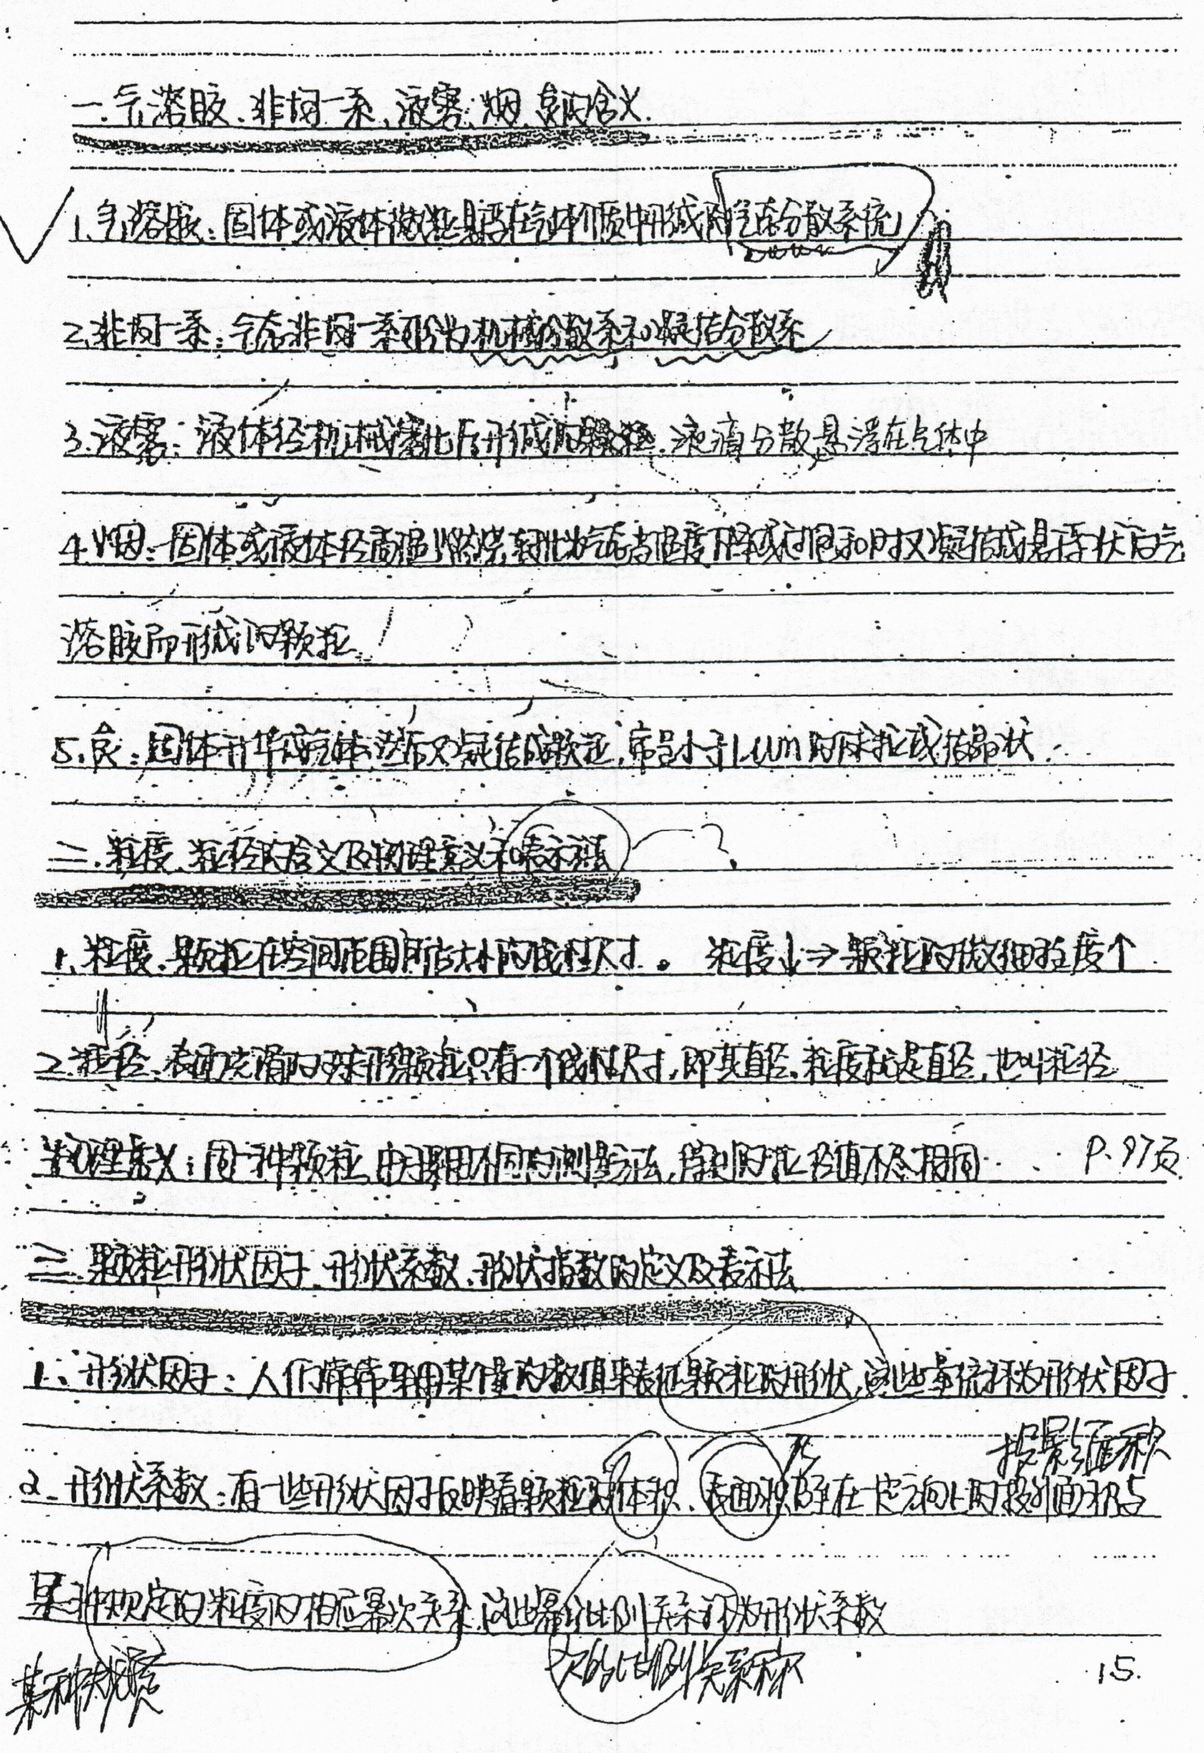 一.气溶胶、非均一系、液雾、烟、炱的含义.
1.气溶胶:固体或液体微粒悬浮在气体介质中形成的气态分散系统
2.非均一系:气态非均一系可分为机械分散系和凝结分散系
3.液雾:液体经机械雾化后形成的颗粒.液滴分散悬浮在气体中
4.烟:固体或液体经高温燃烧转化为气态当温度下降或过饱和时又凝结成悬浮状后气
溶胶而形成的颗粒.
5.炱:固体升华成气体然后又凝结成颗粒,常是小于1um的球粒或结晶状.
二.粒度、粒径的含义及物理意义和表示法 ?
1.粒度.颗粒在空间范围所占大小的线性尺寸。 粒度↓⇒颗粒的微细程度↑
2.粒径.表面光滑的球形颗粒只有一个线性尺寸,即其直径.粒度就是直径,也叫粒径
物理意义:同一种颗粒,由于采用不同的测量方法,得出的粒径值不尽相同 P.97页
三.颗粒形状因子、形状系数、形状指数的定义及表示法
1、形状因子:人们常常采用某个量的数值来表征颗粒的形状,这些量统称为形状因子.
投影面积
2.形状系数:有一些形状因子反映着颗粒的体积、表面积乃至在一定方向上的投影面积与
某种规定的粒度的相应幂次关系.这些幂次比例关系称为形状系数
某种规定 次的比例关系称
15.